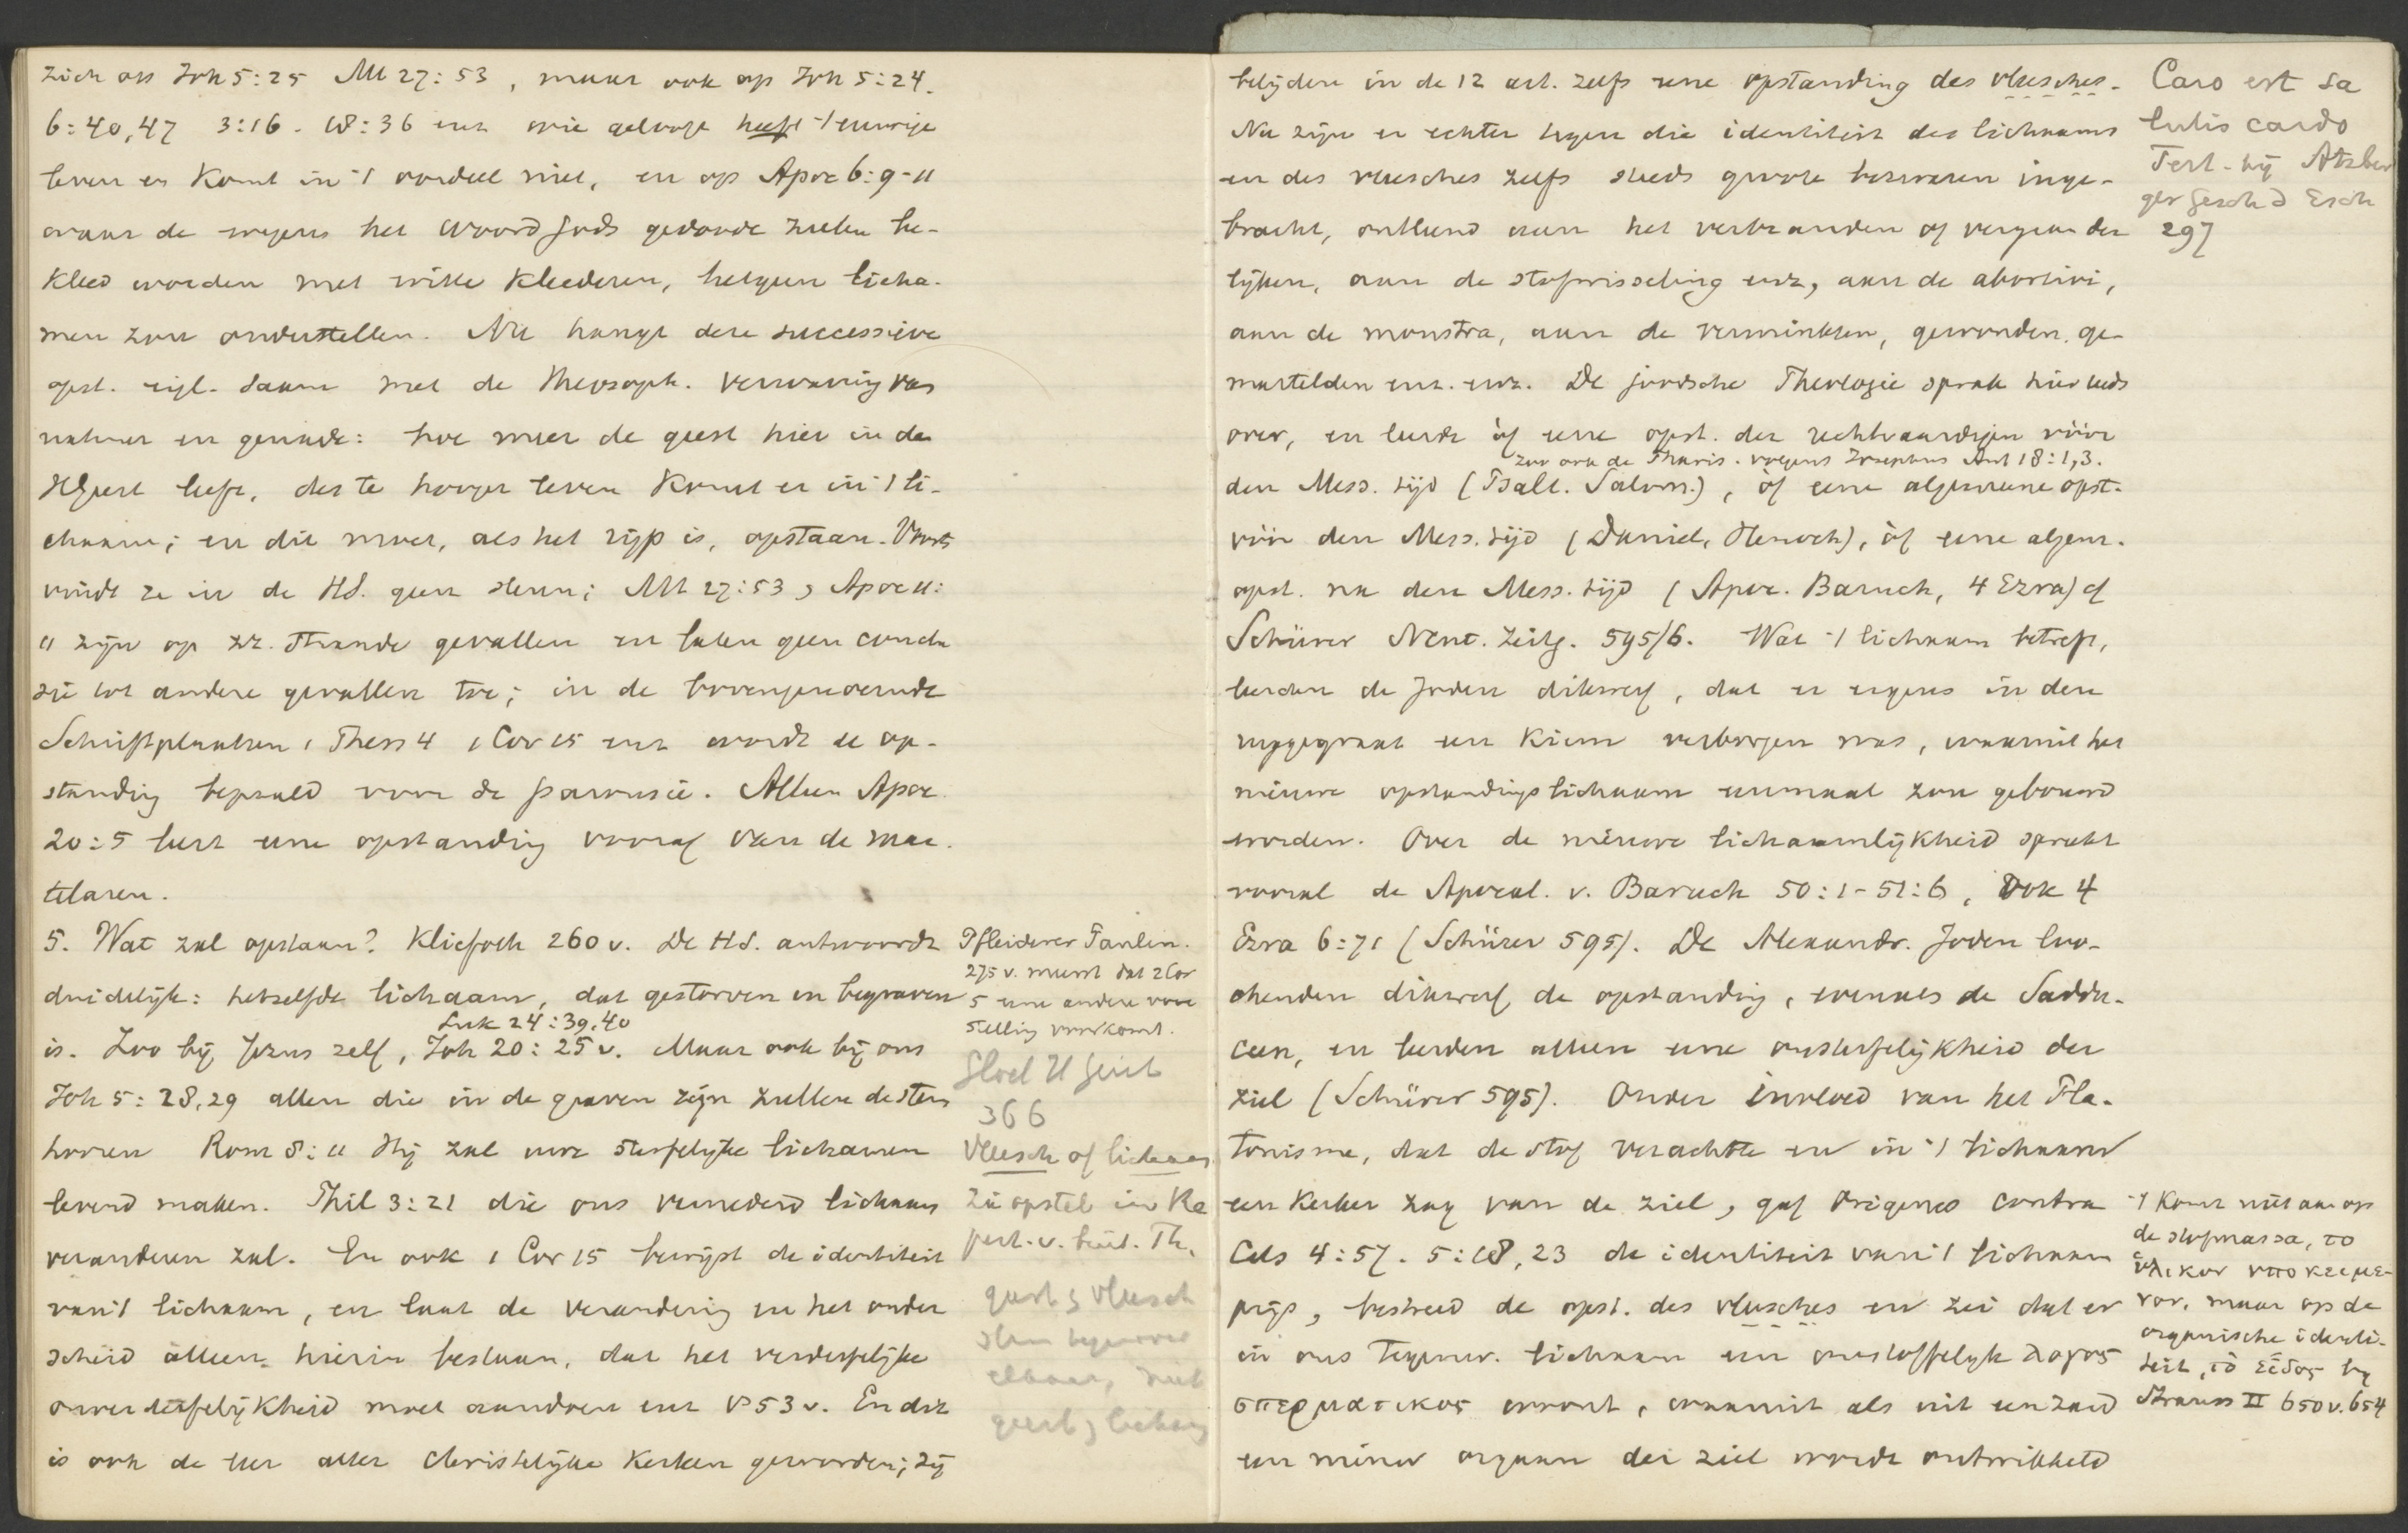 zich op Joh 5:25 Mt 27:53, maar ook op Joh 5:24.
6:40,47 3:16. 18:36 enz wie gelooft heeft 't eeuwige
leven en komt in 't oordeel niet, en op Apoc 6:9-11
waar de wegens het woord Gods gedoode zielen be-
kleed worden met witte kleederen, hetgeen licha-
men zou onderstellen. Nu hangt deze successieve
opst. eigl. saam met de theosoph. verwarring van
natuur en genade: hoe meer de geest hier in den
HGeest leeft, des te hooger leven komt er in 't li-
chaam; en dit moet, als het rijp is, opstaan. Voorts
vindt ze in de HS. geen steun; Mt 27:53 & Apoc 11:
11 zijn op zz. staande gevallen en laten geen conclu
sie tot andere gevallen toe; in de bovengenoemde
Schriftplaatsen 1 Thess 4 1 Cor 15 enz wordt de op-
standing bepaald voor de parousie. Alleen Apoc.
20:5 leert eene opstanding vooraf van de mar-
telaren.
5. Wat zal opstaan? Kliefoth 260 v. De HS. antwoordt
duidelijk: hetzelfde lichaam, dat gestorven en begraven
Luk 24:39.40
is. Zoo bij Jezus zelf, Joh 20:25 v. Maar ook bij ons
Joh 5:28,29 allen die in de graven zijn zullen de stem
hooren Rom 8:11 Hij zal uwe sterfelijke lichamen
levend maken. Phil 3:21 die ons vernederd lichaam
veranderen zal. En ook 1 Cor 15 bewijst de identiteit
van 't lichaam, en laat de verandering en het onder
scheid alleen hierin bestaan, dat het verderfelijke
onverderfelijkheid moet aandoen enz vs 53 v. En dit
is ook de leer aller christelijke kerken geworden; zij
Pfleiderer Paulin.
275 v. meent dat 2 Cor
5 eene andere voor
stelling voorkomt.
Gloel H Geist
366
Vleesch of lichaam
Zie opstel in
geest & vleesch
staan tegenover
elkaar, niet
geest & lichaam
belijden in de 12 art. zelfs eene opstanding des vleesches.
Nu zijn er echter tegen die identiteit des lichaams
en des vleesches zelfs steeds groote bezwaren inge-
bracht, ontleend aan het verbranden of vergaan der
lijken, aan de stofwisseling enz, aan de abortivi,
aan de monstra, aan de verminkten, gewonden, ge-
martelden enz. enz. De joodsche Theologie sprak hier reeds
over, en leerde òf eene opst. der rechtvaardigen vóór
zoo ook de Pharis. volgens Josephus Ant 18:1,3.
den Mess. tijd (Psalt. Salom.), òf eene algemeene opst.
vóór den Mess. tijd (Daniel, Henoch), òf eene algem.
opst. na den Mess. tijd (Apoc. Baruch, 4 Ezra) cf
Schürer Neut. Zeitg. 595/6. Wat 't lichaam betreft,
leerden de Joden dikwerf, dat er ergens in den
ruggegraat een kiem verborgen was, waaruit het
nieuwe opstandingslichaam eenmaal zou gebouwd
worden. Over de nieuwe lichaamlijkheid spreekt
vooral de Apocal. v. Baruch 50:1-51:6, Ook 4
Ezra 6:71 (Schürer 595). De Alexandr. Joden loo-
chenden dikwerf de opstanding, evenals de Saddu-
ceen, en leerden alleen eene onsterfelijkheid der
ziel (Schürer 595). Onder invloed van het Pla-
tonisme, dat de stof verachtte en in 't lichaam
een kerker zag van de ziel, gaf Origenes contra
Cels 4:57. 5:18,23 de identiteit van 't lichaam
prijs, bestreed de opst. des vleesches en zei dat er
in ons tegenw. lichaam een onstoffelyk λογος
σπερματικος woont, waaruit als uit een zaad
een nieuw orgaan der ziel wordt ontwikkeld
Caro est sa
lutis cardo
Tert. bij Atzber
ger Gesch d Esch
297
't Komt niet aan op
de stofmassa, το
ὑλικον υποκειμε-
νον, maar op de
organische identi-
teit, τὸ εἶδος bij
Strauss II 650 v. 654